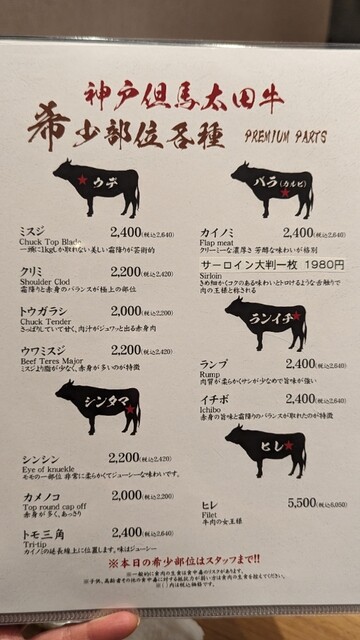 神戸但馬太田牛
希少部位各種 PREMIUM PARTS
ウデ
ミスジ 2,400(税込2,640)
Chuck Top Blade
一頭に1kgしか取れない美しい霜降りが芸術的
クリミ 2,200(税込2,420)
Shoulder Clod
霜降りと赤身のバランスが極上の部位
トウガラシ 2,000(税込2,200)
Chuck Tender
さっぱりしていて甘く、肉汁がジュワっと出る赤身肉
ウワミスジ 2,200(税込2,420)
Beef Teres Major
ミスジより脂が少なく、赤身が多いのが特徴
シンタマ
シンシン 2,200(税込2,420)
Eye of knuckle
モモの一部位 非常に柔らかくてジューシーな味わいです。
カメノコ 2,000(税込2,200)
Top round cap off
赤身が多く、あっさり
トモ三角 2,400(税込2,640)
Tri-tip
カイノミの延長線上に位置します。味はジューシー
バラ(カルビ)
カイノミ 2,400(税込2,640)
Flap meat
クリーミーな濃厚さ 芳醇な味わいが格別
サーロイン大判一枚 1980円
Sirloin
きめ細かくコクのある味わいとトロけるような舌触りで
肉の王様と称される
ランイチ
ランプ 2,400(税込2,640)
Rump
肉質が柔らかくサシが少なめで旨味が強い
イチボ 2,400(税込2,640)
Ichibo
赤身の旨味と霜降りのバランスが取れたのが特徴
ヒレ
ヒレ 5,500(税込6,050)
Filet
牛肉の女王様
※本日の希少部位はスタッフまで!!
※一般的に食肉の生食は食中毒のリスクがあります。
※子供、高齢者その他の食中毒に対する抵抗力が弱い方は食肉の生食を控えてください。
※( )内は税込価格です。